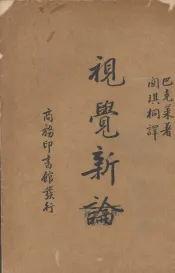 巴克萊著
關琪桐譯
視覺新論
商務印書館發行